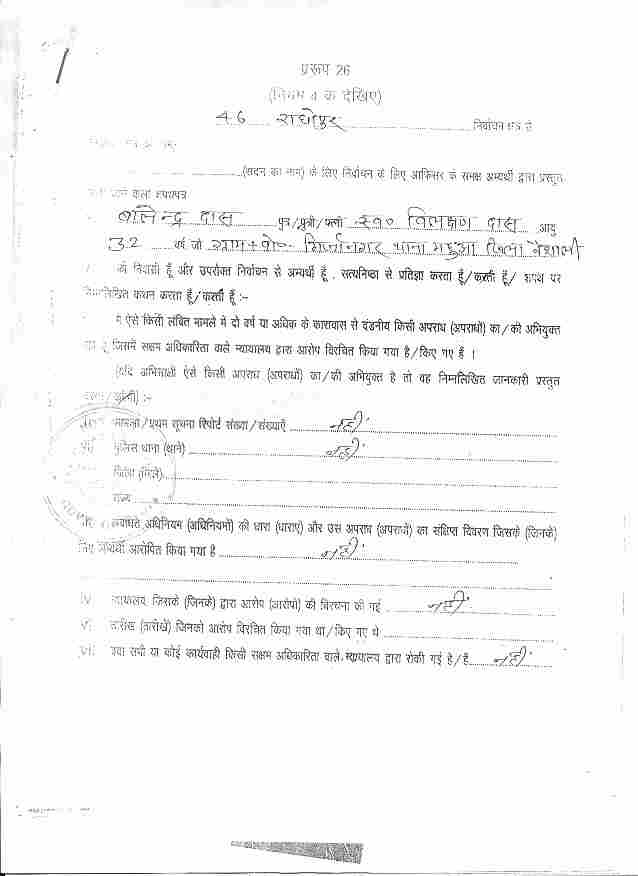 प्ररूप 26
(नियम 4 क देखिए)
46 राघोपुर निर्वाचन क्षेत्र से
(सदन का नाम) के लिए निर्वाचन के लिए आफिसर के समक्ष अभ्यर्थी द्वारा प्रस्तुत
किये जाने वाला शपथपत्र
बालेन्द्र दास पुत्र/पुत्री/पत्नी स्व० विलक्षण दास आयु
32 वर्ष जो ग्राम+पो०- मिर्जानगर थाना महुआ जिला वैशाली
का निवासी हूँ और उपरोक्त निर्वाचन से अभ्यर्थी हूँ , सत्यनिष्ठा से प्रतिज्ञा करता हूँ/करती हूँ/ शपथ पर
निम्नलिखित कथन करता हूँ/करती हूँ :-
मैं ऐसे किसी लंबित मामले में दो वर्ष या अधिक के कारावास से दंडनीय किसी अपराध (अपराधों) का/की अभियुक्त
हूँ जिसमें सक्षम अधिकारिता वाले न्यायालय द्वारा आरोप विरचित किया गया है/किए गए हैं ।
(यदि अभिसाक्षी ऐसे किसी अपराध (अपराधों) का/की अभियुक्त है तो वह निम्नलिखित जानकारी प्रस्तुत
करेगा/करेगी) :-
मामला/प्रथम सूचना रिपोर्ट संख्या/संख्याएँ नहीं
पुलिस थाना (थाने) नहीं
जिला (जिले)
राज्य
संबंधित अधिनियम (अधिनियमों) की धारा (धाराएं) और उस अपराध (अपराधों) का संक्षिप्त विवरण जिसके (जिनके)
लिए अभ्यर्थी आरोपित किया गया है नहीं
iv न्यायालय जिसके (जिनके) द्वारा आरोप (आरोपों) की विरचना की गई नहीं
v तारीख (तारीखें) जिनको आरोप विरचित किया गया था/किए गए थे
vi क्या सभी या कोई कार्यवाही किसी सक्षम अधिकारिता वाले न्यायालय द्वारा रोकी गई है/हैं नहीं